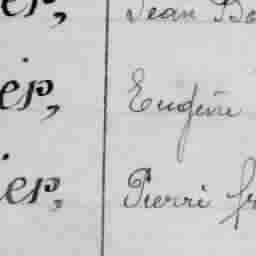 er, Jean
ier, Eugène
ier, Pierre